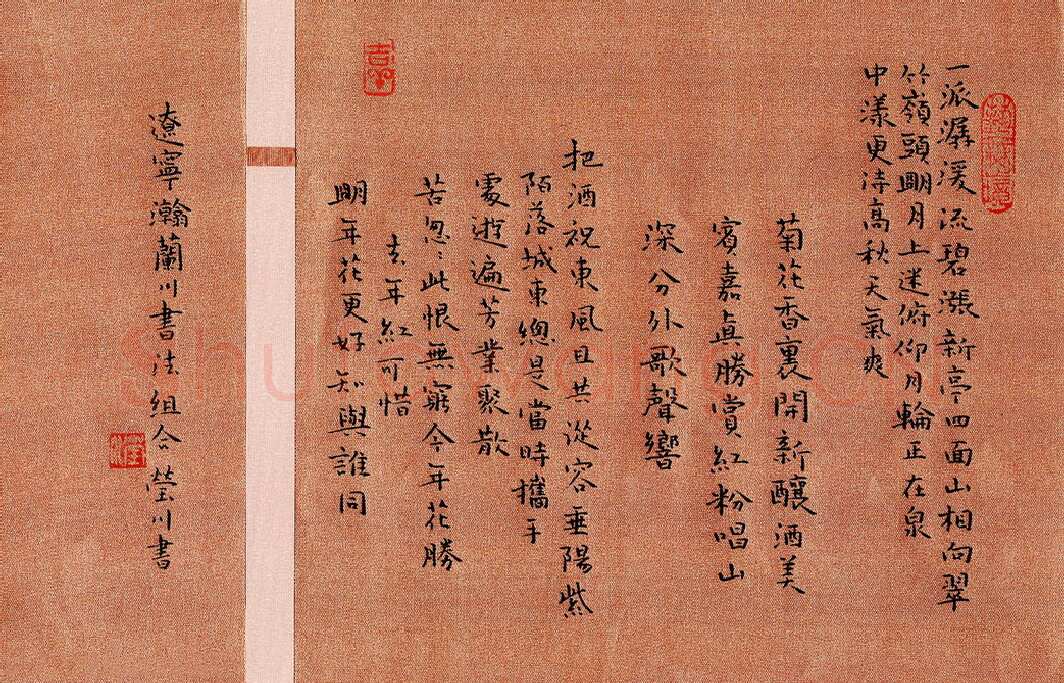 一派潺湲流碧漲新亭四面山相向翠
竹嶺頭朙月上迷俯仰月輪正在泉
中漾更待高秋天氣爽
菊花香裏開新釀酒美
賓嘉眞勝賞紅粉唱山
深分外歌聲響
把酒祝東風且共從容垂陽紫
陌落城東總是當時攜手
處遊遍芳業聚散
苦忽〻此恨無窮今年花勝
去年紅可惜
朙年花更好知與誰同
遼寧瀚蘭川書法組合 瑩川書